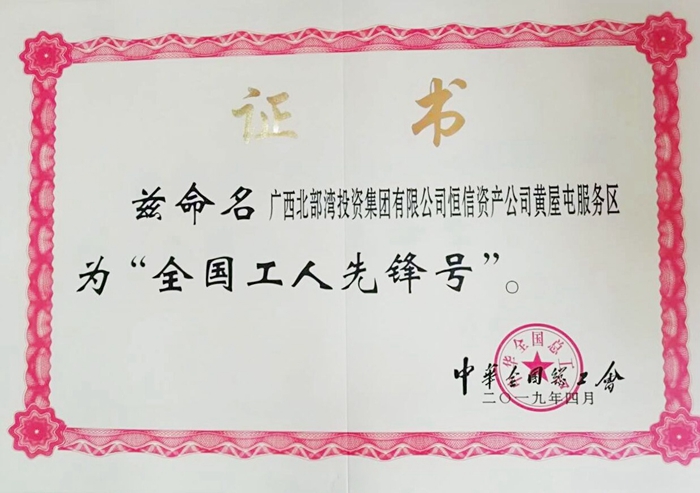 证书
兹命名广西北部湾投资集团有限公司恒信资产公司黄屋屯服务区
为“全国工人先锋号”。
中华全国总工会
中華全国総工會
二〇一九年四月